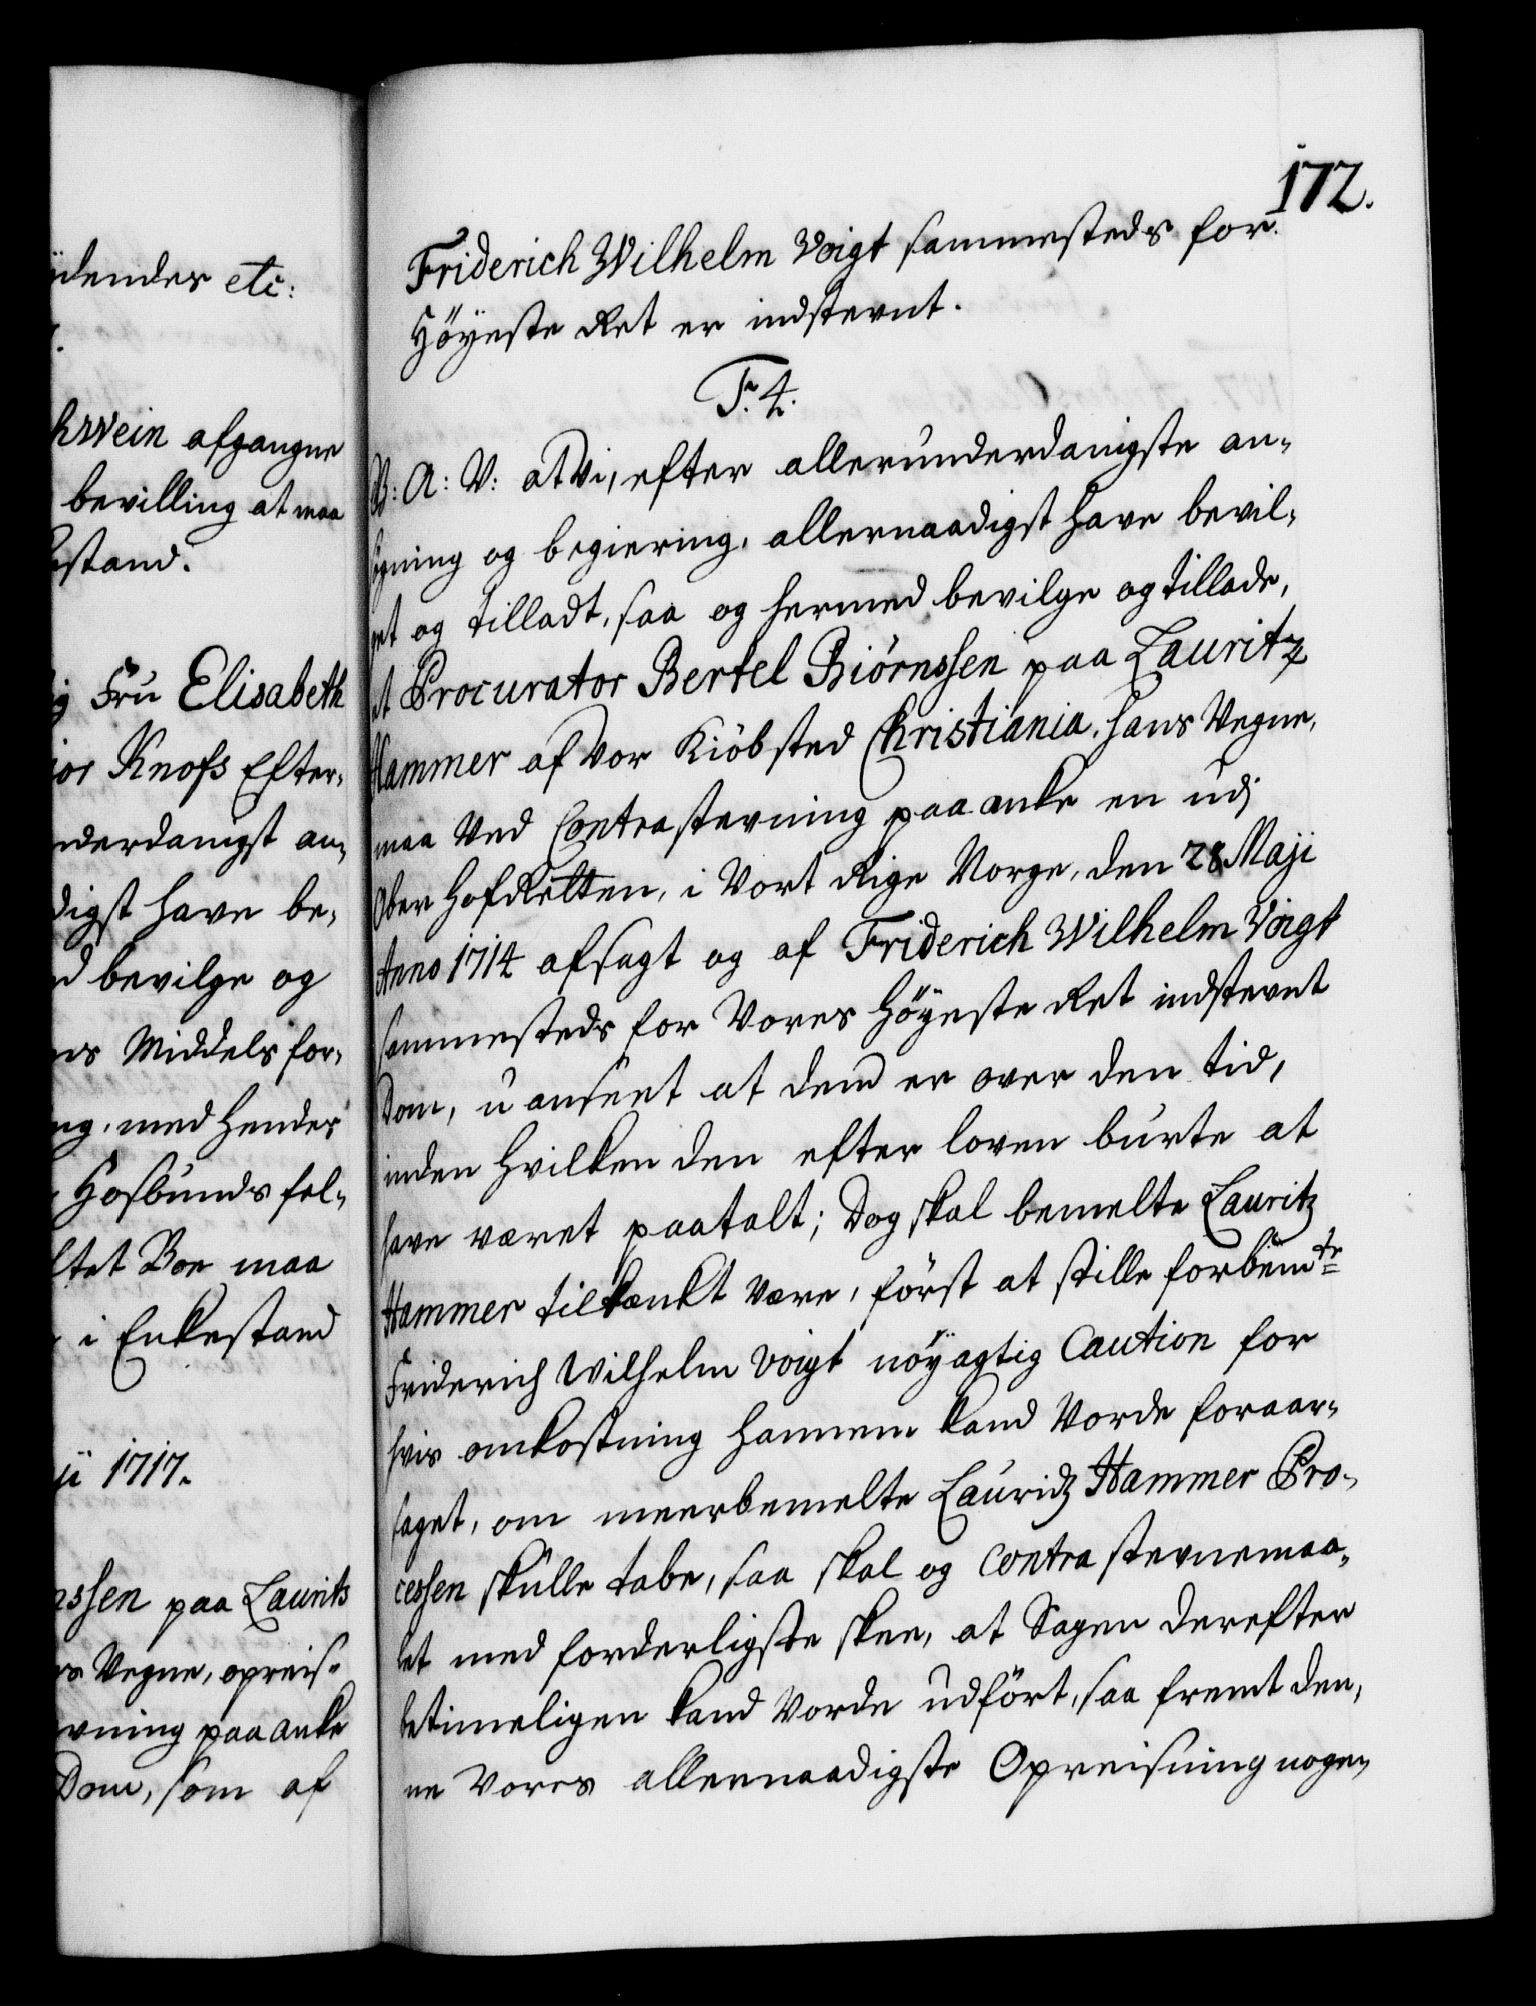 ÿdendes etc:
hrwein afgangne
bevilling at maa
stand.
Fru Elisabeth
ior Knofs Efter-
nderdanigst an-
digst have be-
bevilge og
Middels for-
ng, med hendes
Hosbunds fal-
ltet Boe maa
i Enkestand
ii 1717.
nssen paa Laurits
Vegne, opreis-
vning paaanke
Dom, som af
172.
Friderich Wilhelm Voigt sammesteds for
Höÿeste Ret er indstevnt.
F. 4.
V: A: V: at Vi, efter allerunderdanigste an-
sögning og begiering, allernaadigst have bevil-
get og tilladt, saa og hermed bevilge og tillade,
at Procurator Bertel Biörnssen paa Lauritz
Hammer af Vor Kiöbsted Christiania, hans Vegne,
maa Ved Contrastevning paaanke en udj
Ober HofRetten, i Vort Rige Norge, den 28 Maji
Anno 1714 afsagt og af Friderich Wilhelm Voigt
sammesteds for Vores Höÿeste Ret indstevnt
Dom, uanseet at dend er over den tid,
inden hvilken den efter loven burte at
have været paatalt; Dog skal bemelte Lauritz
Hammer tiltænkt være, först at stille forbemte
Friderich Wilhelm Voigt nöÿagtig Caution for
hvis omkostning hannem kand Vorde foraar-
saget, om meerbemelte Lauridz Hammer Pro-
cessen skulle tabe, saa skal og Contra stevnemaa-
let med forderligste skee, at Sagen derefter
betimeligen kand Vorde udfört, saa fremt den-
ne Vores allernaadigste Opreisning noge-